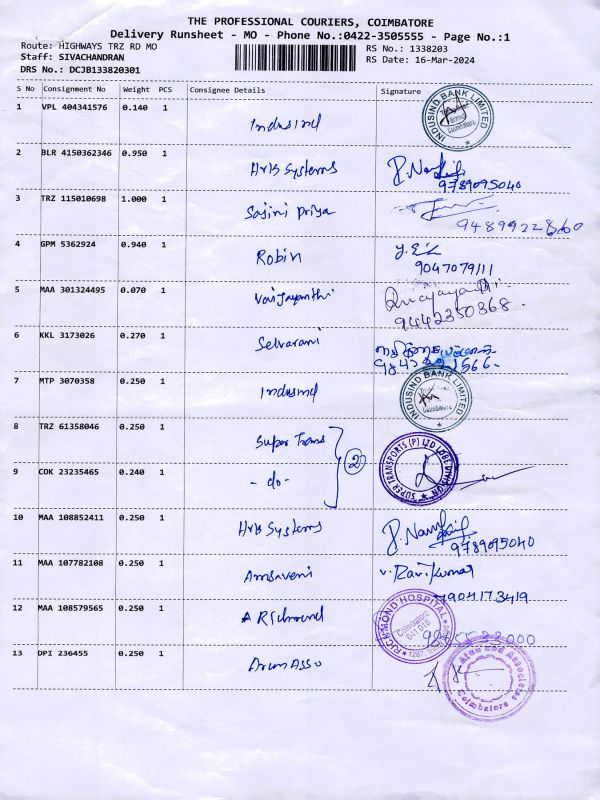 THE PROFESSIONAL COURIERS, COIMBATORE
Delivery Runsheet - MO - Phone No.:0422-3505555 - Page No.:1
Route: HIGHWAYS TRZ RD MO RS No.: 1338203
Staff: SIVACHANDRAN RS Date: 16-Mar-2024
DRS No.: DCJB133820301
S No Consignment No Weight PCS Consignee Details Signature
1 VPL 404341576 0.140 1 Indusind INDUSIND BANK LIMITED Coimbatore
2 BLR 4150362346 0.950 1 HRB Systems
9789095040
3 TRZ 115010698 1.000 1 Sajini Priya
9489922860
4 GPM 5362924 0.940 1 Robin
9047079111
5 MAA 301324495 0.070 1 Vaijayanthi
9442350368.
6 KKL 3173026 0.270 1 Selvarani
7 MTP 3070358 0.250 1 Indusind INDUSIND BANK LIMITED Coimbatore
8 TRZ 61358046 0.250 1 Super Trans SUPER TRANSPORTS (P) LTD
2
9 COK 23235465 0.240 1 - do -
10 MAA 108852411 0.250 1 HRB Systems
9789095040
11 MAA 107782108 0.250 1 Amsaveni V. Ravikumar
7904173419
12 MAA 108579565 0.250 1 A Richmond RICHMOND HOSPITAL Coimbatore 641 018
13 DPI 236455 0.250 1 Arun Asso Arun and Associates Coimbatore